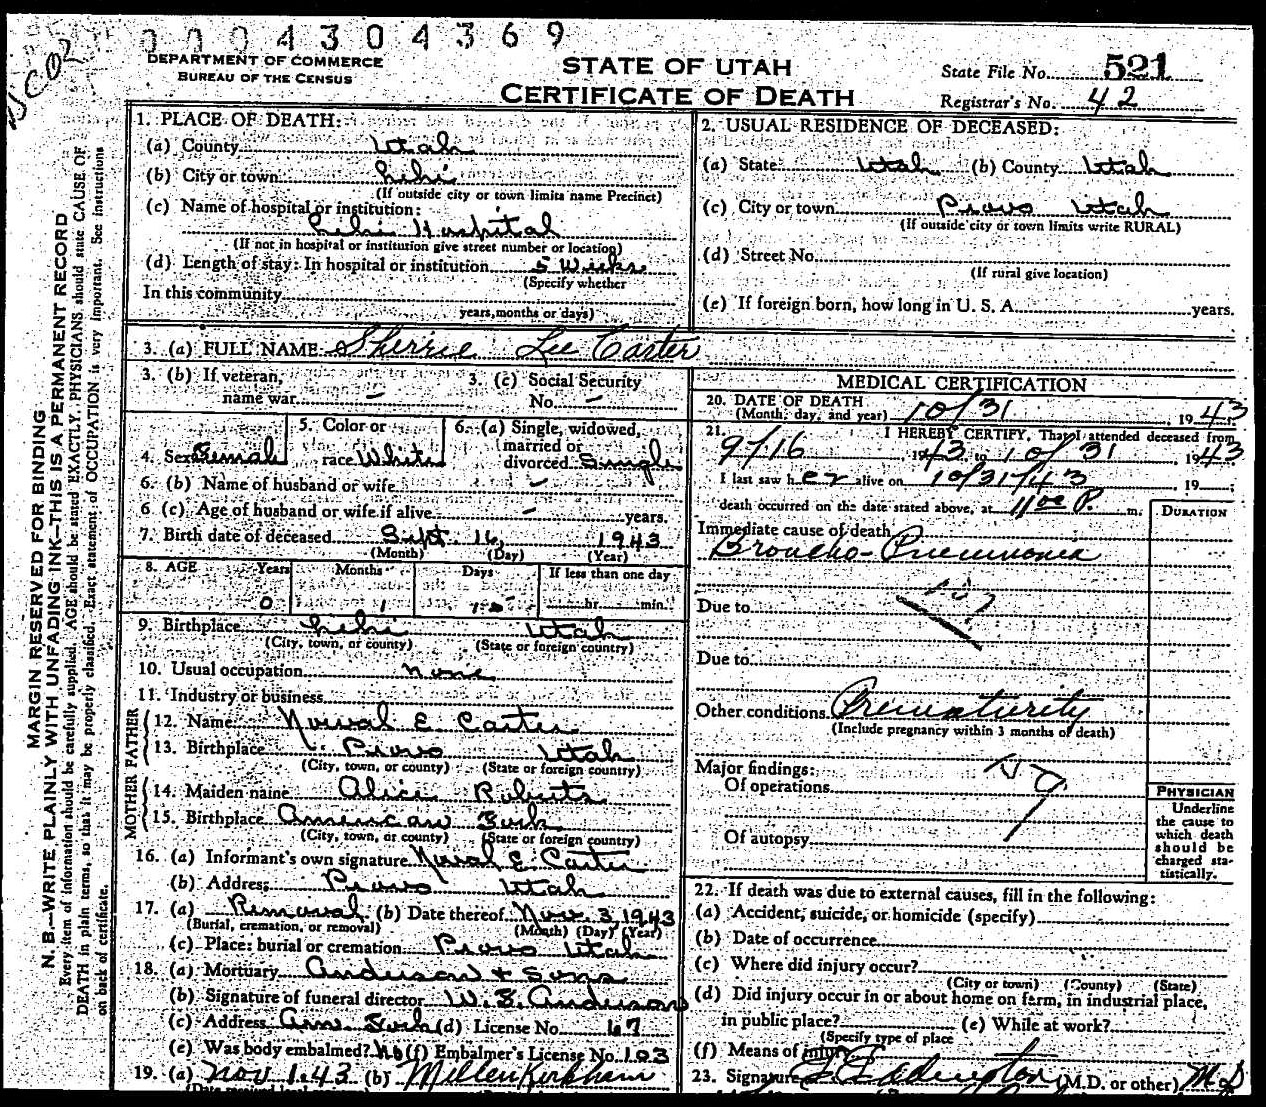 0004304369
DEPARTMENT OF COMMERCE
BUREAU OF THE CENSUS
STATE OF UTAH
CERTIFICATE OF DEATH
State File No. 521
Registrar's No. 42
MARGIN RESERVED FOR BINDING
N. B.—WRITE PLAINLY WITH UNFADING INK—THIS IS A PERMANENT RECORD
Every item of information should be carefully supplied. AGE should be stated EXACTLY. PHYSICIANS should state CAUSE OF
DEATH in plain terms, so that it may be properly classified. Exact statement of OCCUPATION is very important. See instructions
on back of certificate.
1. PLACE OF DEATH:
(a) County Utah
(b) City or town Lehi
(If outside city or town limits name Precinct)
(c) Name of hospital or institution:
Lehi Hospital
(If not in hospital or institution give street number or location)
(d) Length of stay: In hospital or institution 5 Weeks
(Specify whether
In this community
years, months or days)
2. USUAL RESIDENCE OF DECEASED:
(a) State Utah (b) County Utah
(c) City or town Provo Utah
(If outside city or town limits write RURAL)
(d) Street No.
(If rural give location)
(e) If foreign born, how long in U. S. A. years.
3. (a) FULL NAME Sherrie Lee Carter
3. (b) If veteran, name war –
3. (c) Social Security No. –
4. Sex Female
5. Color or race White
6. (a) Single, widowed, married or divorced Single
6. (b) Name of husband or wife –
6 (c). Age of husband or wife if alive – years.
7. Birth date of deceased Sept. 16, 1943
(Month) (Day) (Year)
8. AGE Years Months Days If less than one day
0 1 15 hr. min.
9. Birthplace Lehi Utah
(City, town, or county) (State or foreign country)
10. Usual occupation none
11. Industry or business
FATHER
12. Name Norval E. Carter
13. Birthplace Provo Utah
(City, town, or county) (State or foreign country)
MOTHER
14. Maiden name Alice Roberts
15. Birthplace American Fork
(City, town, or county) (State or foreign country)
16. (a) Informant's own signature Norval E. Carter
(b) Address Provo Utah
17. (a) Removal (b) Date thereof Nov. 3 1943
(Burial, cremation, or removal) (Month) (Day) (Year)
(c) Place: burial or cremation Provo Utah
18. (a) Mortuary Anderson & Sons
(b) Signature of funeral director W. E. Anderson
(c) Address Am. Fork (d) License No. 67
(e) Was body embalmed? No (f) Embalmer's License No. 103
19. (a) Nov 1.43 (b) Milton Kirkham
MEDICAL CERTIFICATION
20. DATE OF DEATH
(Month, day, and year) 10/31, 1943
21. I HEREBY CERTIFY, That I attended deceased from
9/16, 1943 to 10/31, 1943
I last saw her alive on 10/31/43, 19
death occurred on the date stated above, at 11:00 P. m.
DURATION
Immediate cause of death
Broncho-Pneumonia
Due to
Due to
Other conditions Prematurity
(Include pregnancy within 3 months of death)
Major findings:
Of operations
Of autopsy
PHYSICIAN
Underline
the cause to
which death
should be
charged sta-
tistically.
22. If death was due to external causes, fill in the following:
(a) Accident, suicide, or homicide (specify)
(b) Date of occurrence
(c) Where did injury occur?
(City or town) (County) (State)
(d) Did injury occur in or about home on farm, in industrial place,
in public place? (e) While at work?
(Specify type of place
(f) Means of injury
23. Signature Eddington (M.D. or other) M.D